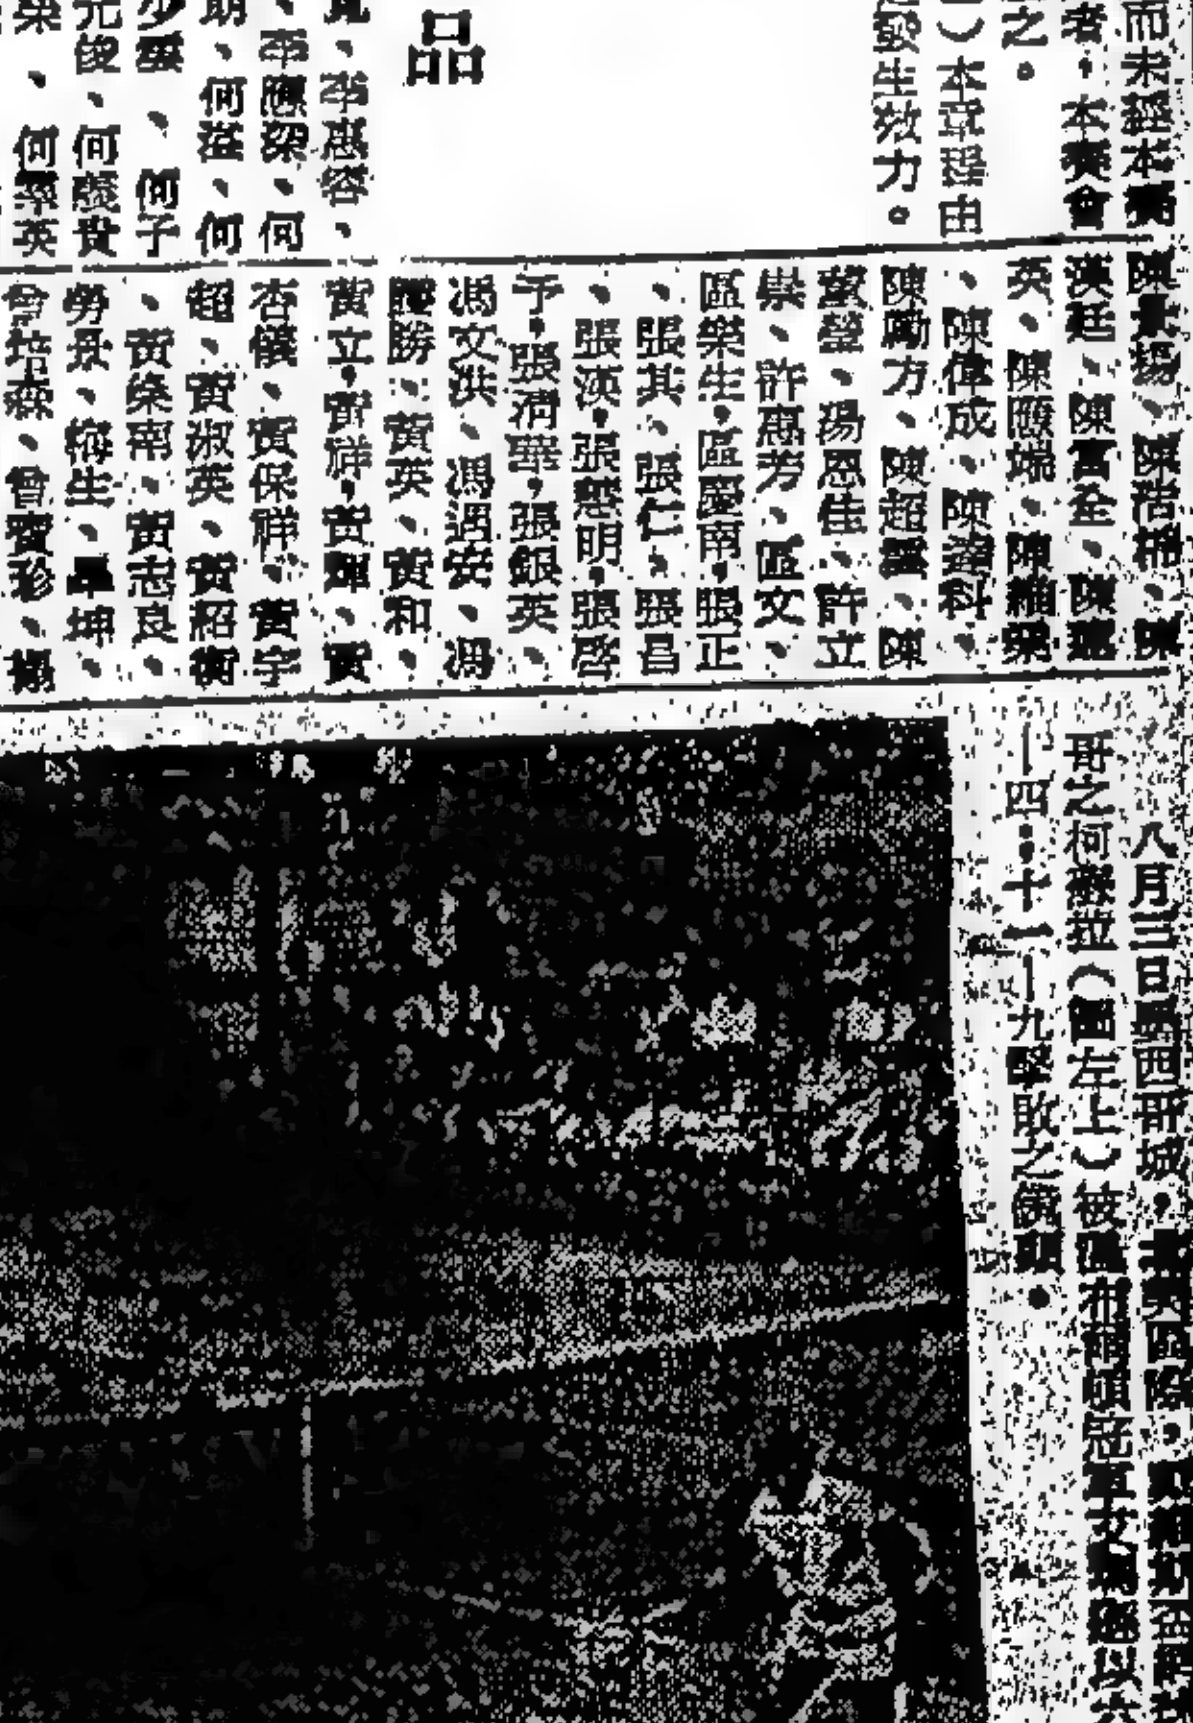 而未經本
者，本獎會
之。
）本章程由
發生效力。
品
、李惠容、
、李應深、何
、何溢、何
少雲、何子
俊、何發貴
、何翠英
、陳浩格、陳
漢廷、陳富全、陳
英、陳應端、陳
、陳偉成、陳達科、
陳勵方、陳超雲、陳
、湯恩佳、許立
崇、許惠芳、區文、
區樂生，區慶南，張正
、張其、張仁、張昌
、張漢，張慧明，張啓
予，張清華，張銀英、
馮文洪、馮遇安、馮
勝、黃英、黃和、
黃立，黃祥，黃輝、黃
杏儀、黃保祥、黃宇
超、黃淑英、黃紹衡
、黃榮南、黃志良、
勞景、梅生、坤、
曾培森、曾寶珍、楊
八月三日墨西哥城，北美區際，
哥之柯（圖左上）被溫布爾頓冠軍艾以六
－四，十一－九擊敗之鏡頭。